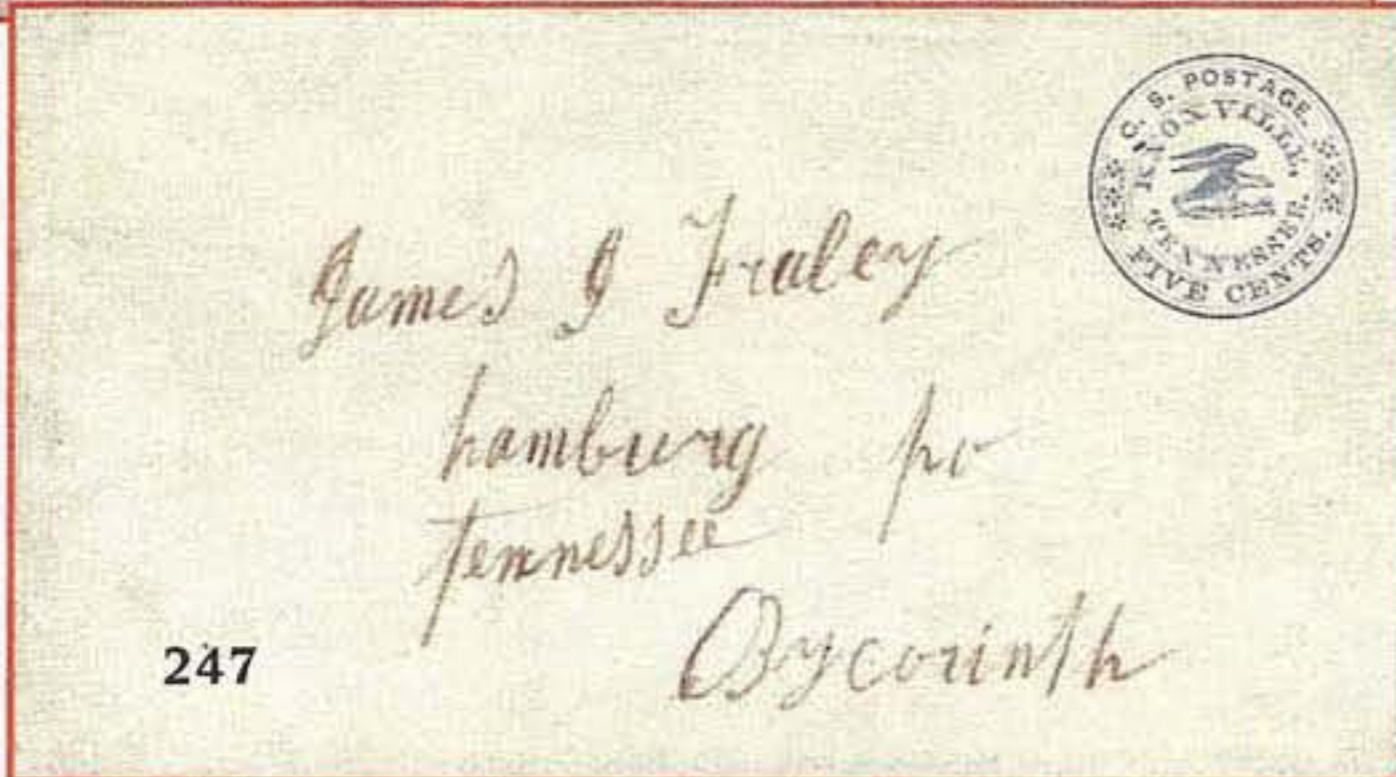 C. S. POSTAGE.
KNOXVILLE,
TENNESSEE.
FIVE CENTS.
James J Fraley
hamburg po
tennessee
By corinth
247